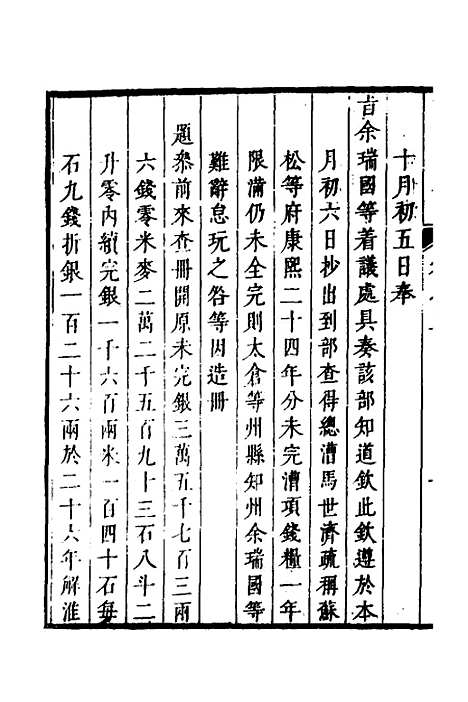 十月初五日奉
旨余瑞國等着議處具奏該部知道欽此欽遵於本
月初六日抄出到部查得總漕馬世濟疏稱蘇
松等府康熙二十四年分未完漕項錢糧一年
限滿仍未全完則太倉等州縣知州余瑞國等
難辭怠玩之咎等因造冊
題叅前來查冊開原未完銀三萬五千七百三兩
六錢零米麥二萬二千五百九十三石八斗二
升零內續完銀一千六百兩米一百四十石每
石九錢折銀一百二十六兩於二十六年解淮